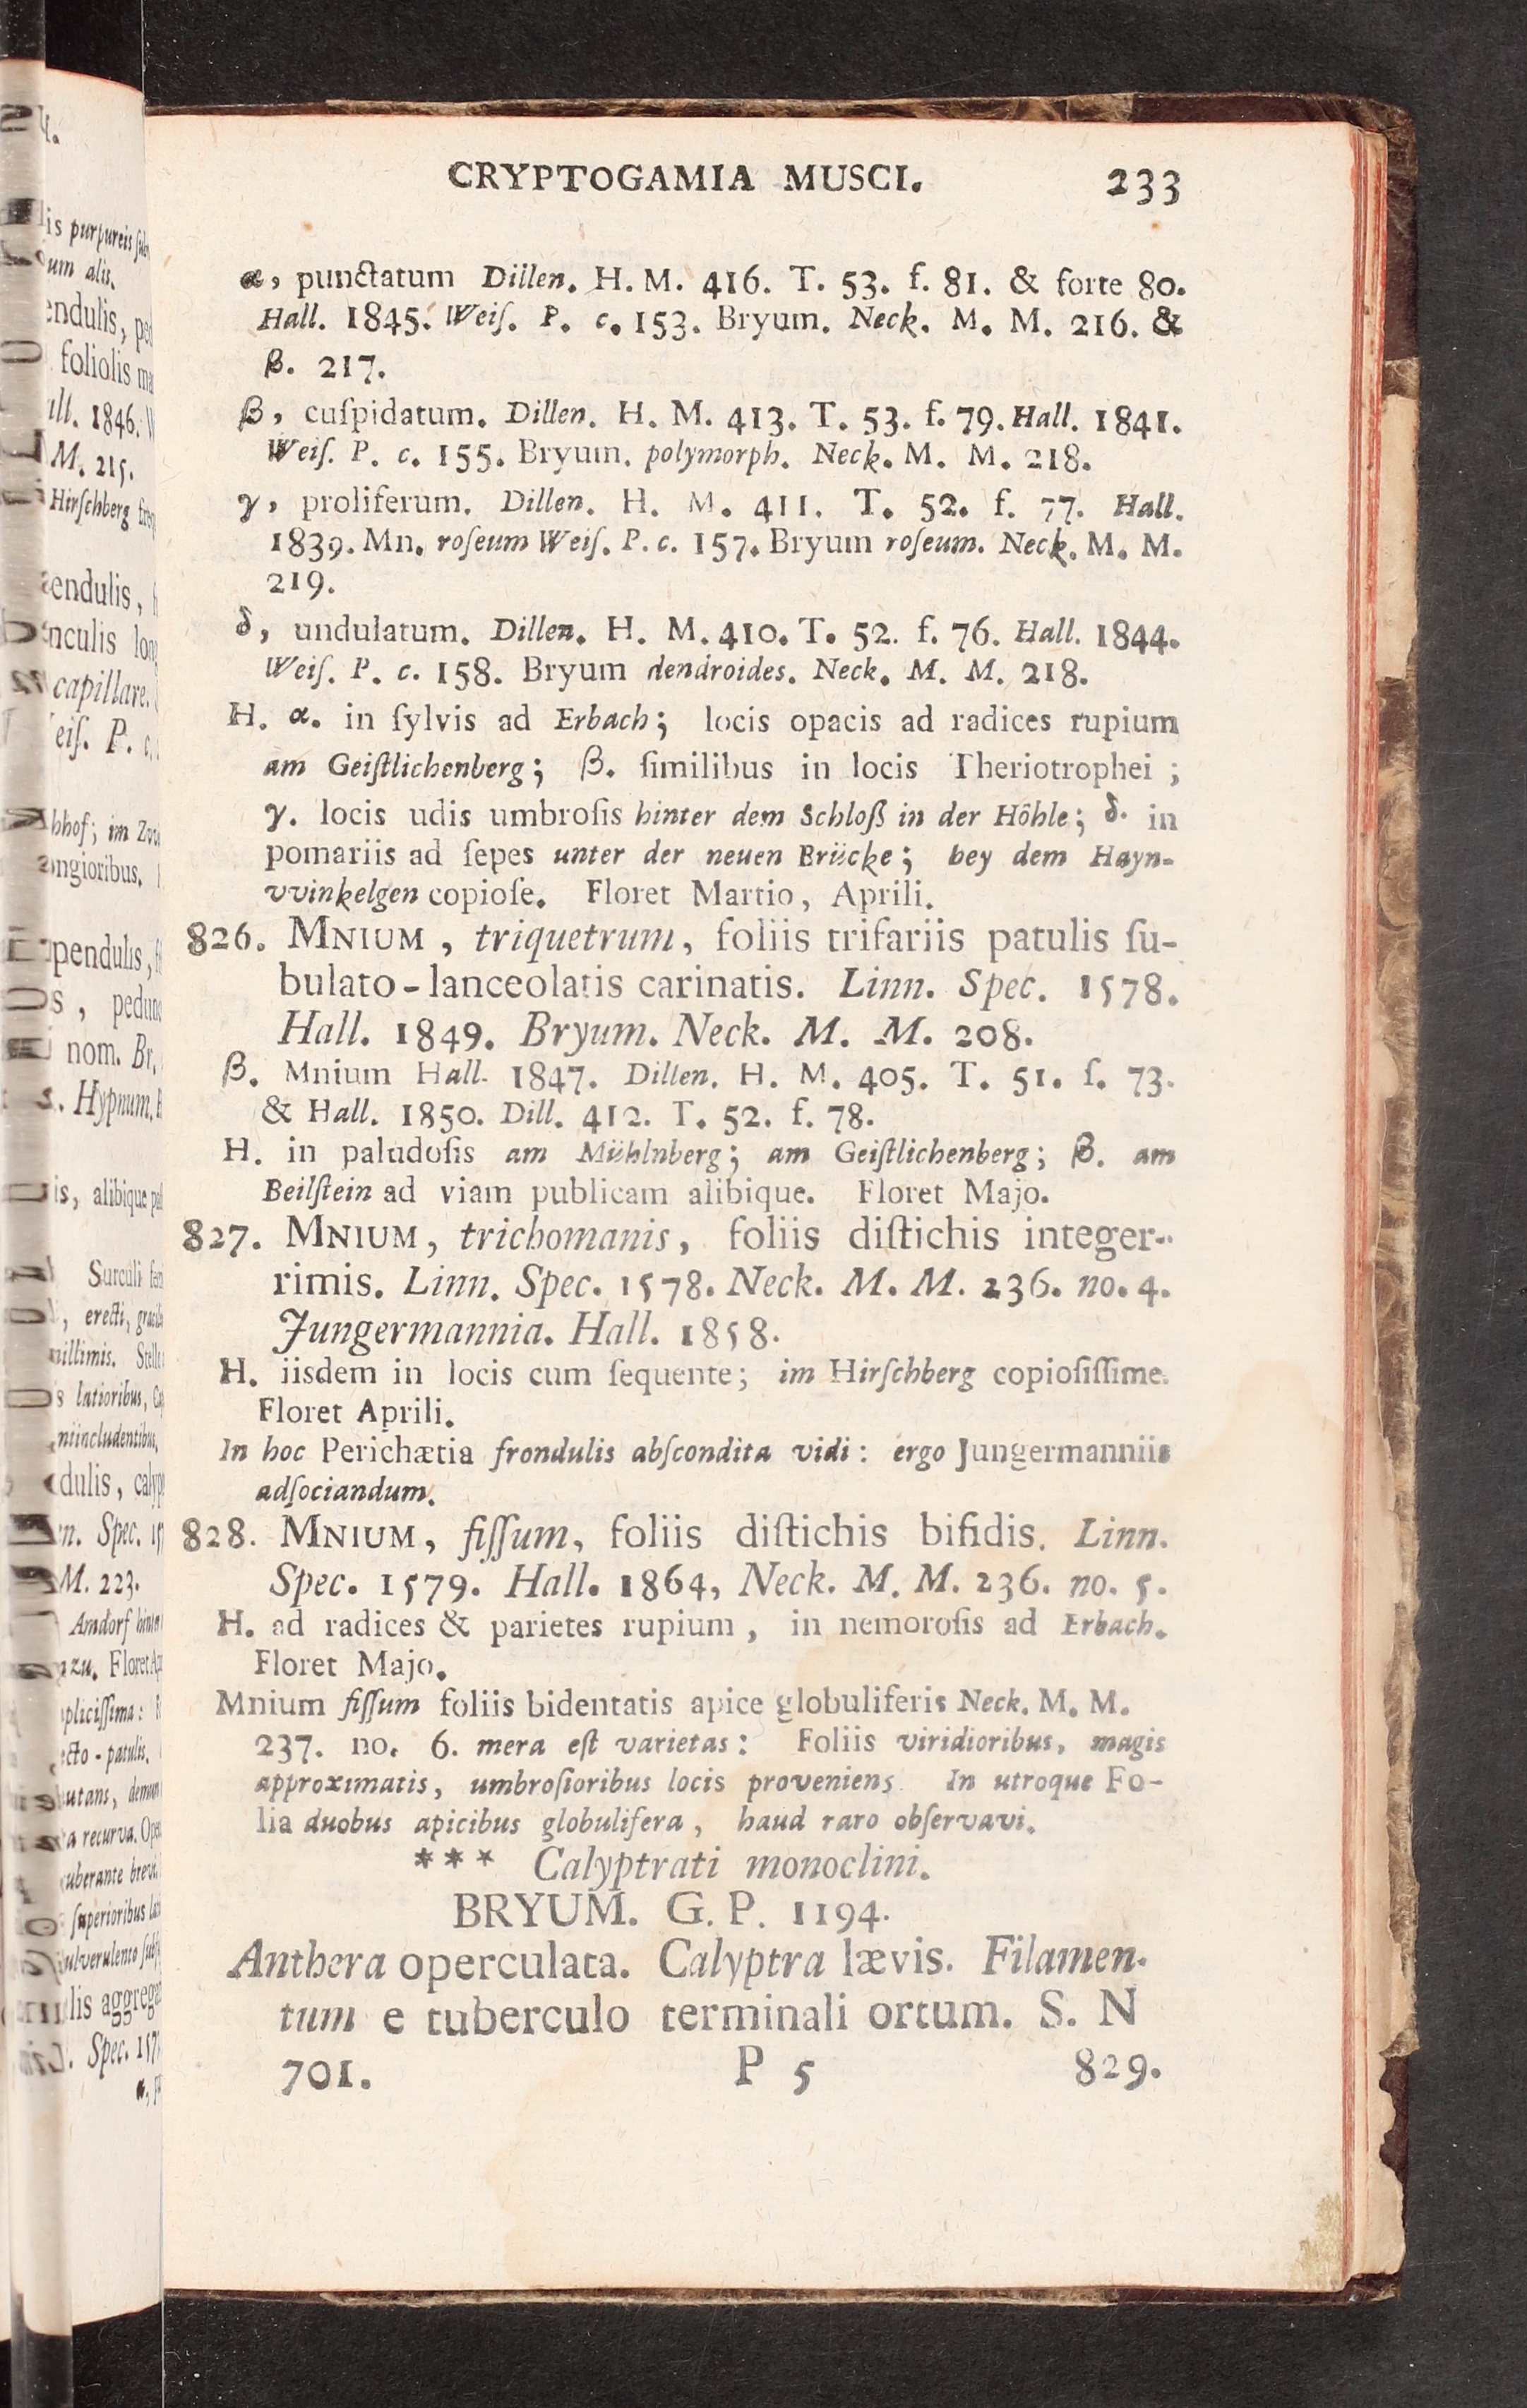 CRYPTOGAMIA MUSCI. 233
α, punctatum Dillen. H. M. 416. T. 53. f. 81. & forte 80.
Hall. 1845. Weiſ. P. c. 153. Bryum. Neck. M. M. 216. &
β. 217.
β, cuſpidatum. Dillen. H. M. 413. T. 53. f. 79. Hall. 1841.
Weiſ. P. c. 155. Bryum. polymorph. Neck. M. M. 218.
γ, proliferum. Dillen. H. M. 411. T. 52. f. 77. Hall.
1839. Mn. roſeum Weiſ. P. c. 157. Bryum roſeum. Neck. M. M.
219.
δ, undulatum. Dillen. H. M. 410. T. 52. f. 76. Hall. 1844.
Weiſ. P. c. 158. Bryum dendroides. Neck. M. M. 218.
H. α. in ſylvis ad Erbach; locis opacis ad radices rupium
am Geiſtlichenberg; β. ſimilibus in locis Theriotrophei;
γ. locis udis umbroſis hinter dem Schloß in der Höhle; δ. in
pomariis ad ſepes unter der neuen Brücke; bey dem Hayn-
vvinkelgen copioſe. Floret Martio, Aprili.
826. MNIUM, triquetrum, foliis trifariis patulis ſu-
bulato-lanceolatis carinatis. Linn. Spec. 1578.
Hall. 1849. Bryum. Neck. M. M. 208.
β. Mnium Hall. 1847. Dillen. H. M. 405. T. 51. f. 73.
& Hall. 1850. Dill. 412. T. 52. f. 78.
H. in paludoſis am Mühlnberg; am Geiſtlichenberg; β. am
Beilſtein ad viam publicam alibique. Floret Majo.
827. MNIUM, trichomanis, foliis diſtichis integer-
rimis. Linn. Spec. 1578. Neck. M. M. 236. no. 4.
Jungermannia. Hall. 1858.
H. iisdem in locis cum ſequente; im Hirſchberg copioſiſſime.
Floret Aprili.
In hoc Perichætia frondulis abſcondita vidi: ergo Jungermanniis
adſociandum.
828. MNIUM, fiſſum, foliis diſtichis bifidis. Linn.
Spec. 1579. Hall. 1864, Neck. M. M. 236. no. 5.
H. ad radices & parietes rupium, in nemoroſis ad Erbach.
Floret Majo.
Mnium fiſſum foliis bidentatis apice globuliferis Neck. M. M.
237. no. 6. mera eſt varietas: Foliis viridioribus, magis
approximatis, umbroſioribus locis proveniens In utroque Fo-
lia duobus apicibus globulifera, haud raro obſervavi.
*** Calyptrati monoclini.
BRYUM. G. P. 1194.
Anthera operculata. Calyptra lævis. Filamen-
tum e tuberculo terminali ortum. S. N
701. P 5 829.